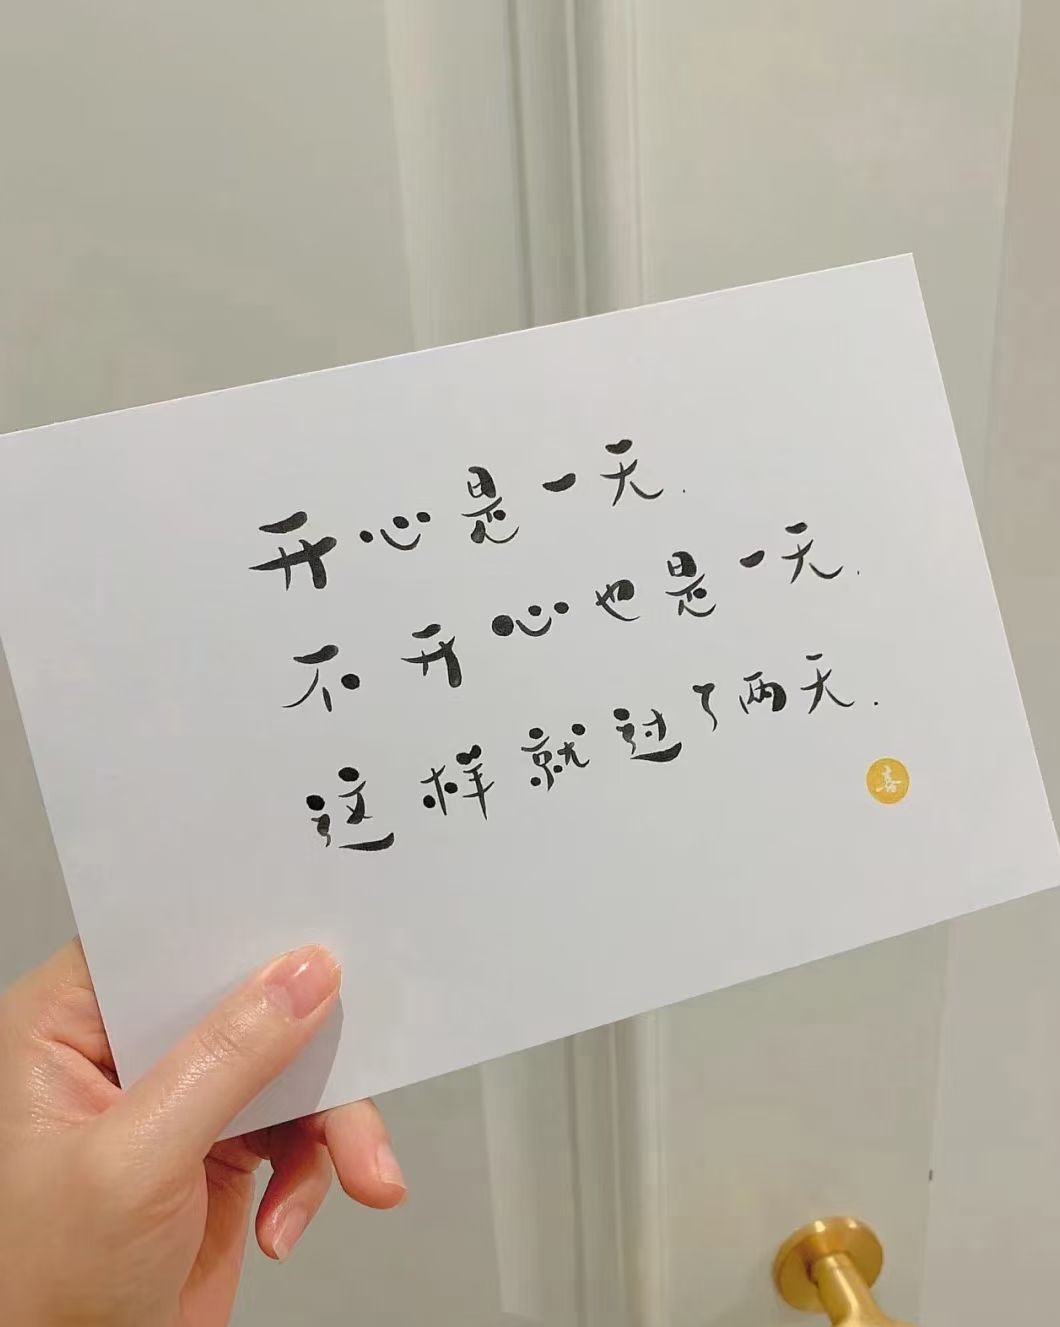 开心是一天.
不开心也是一天.
这样就过了两天.
喜